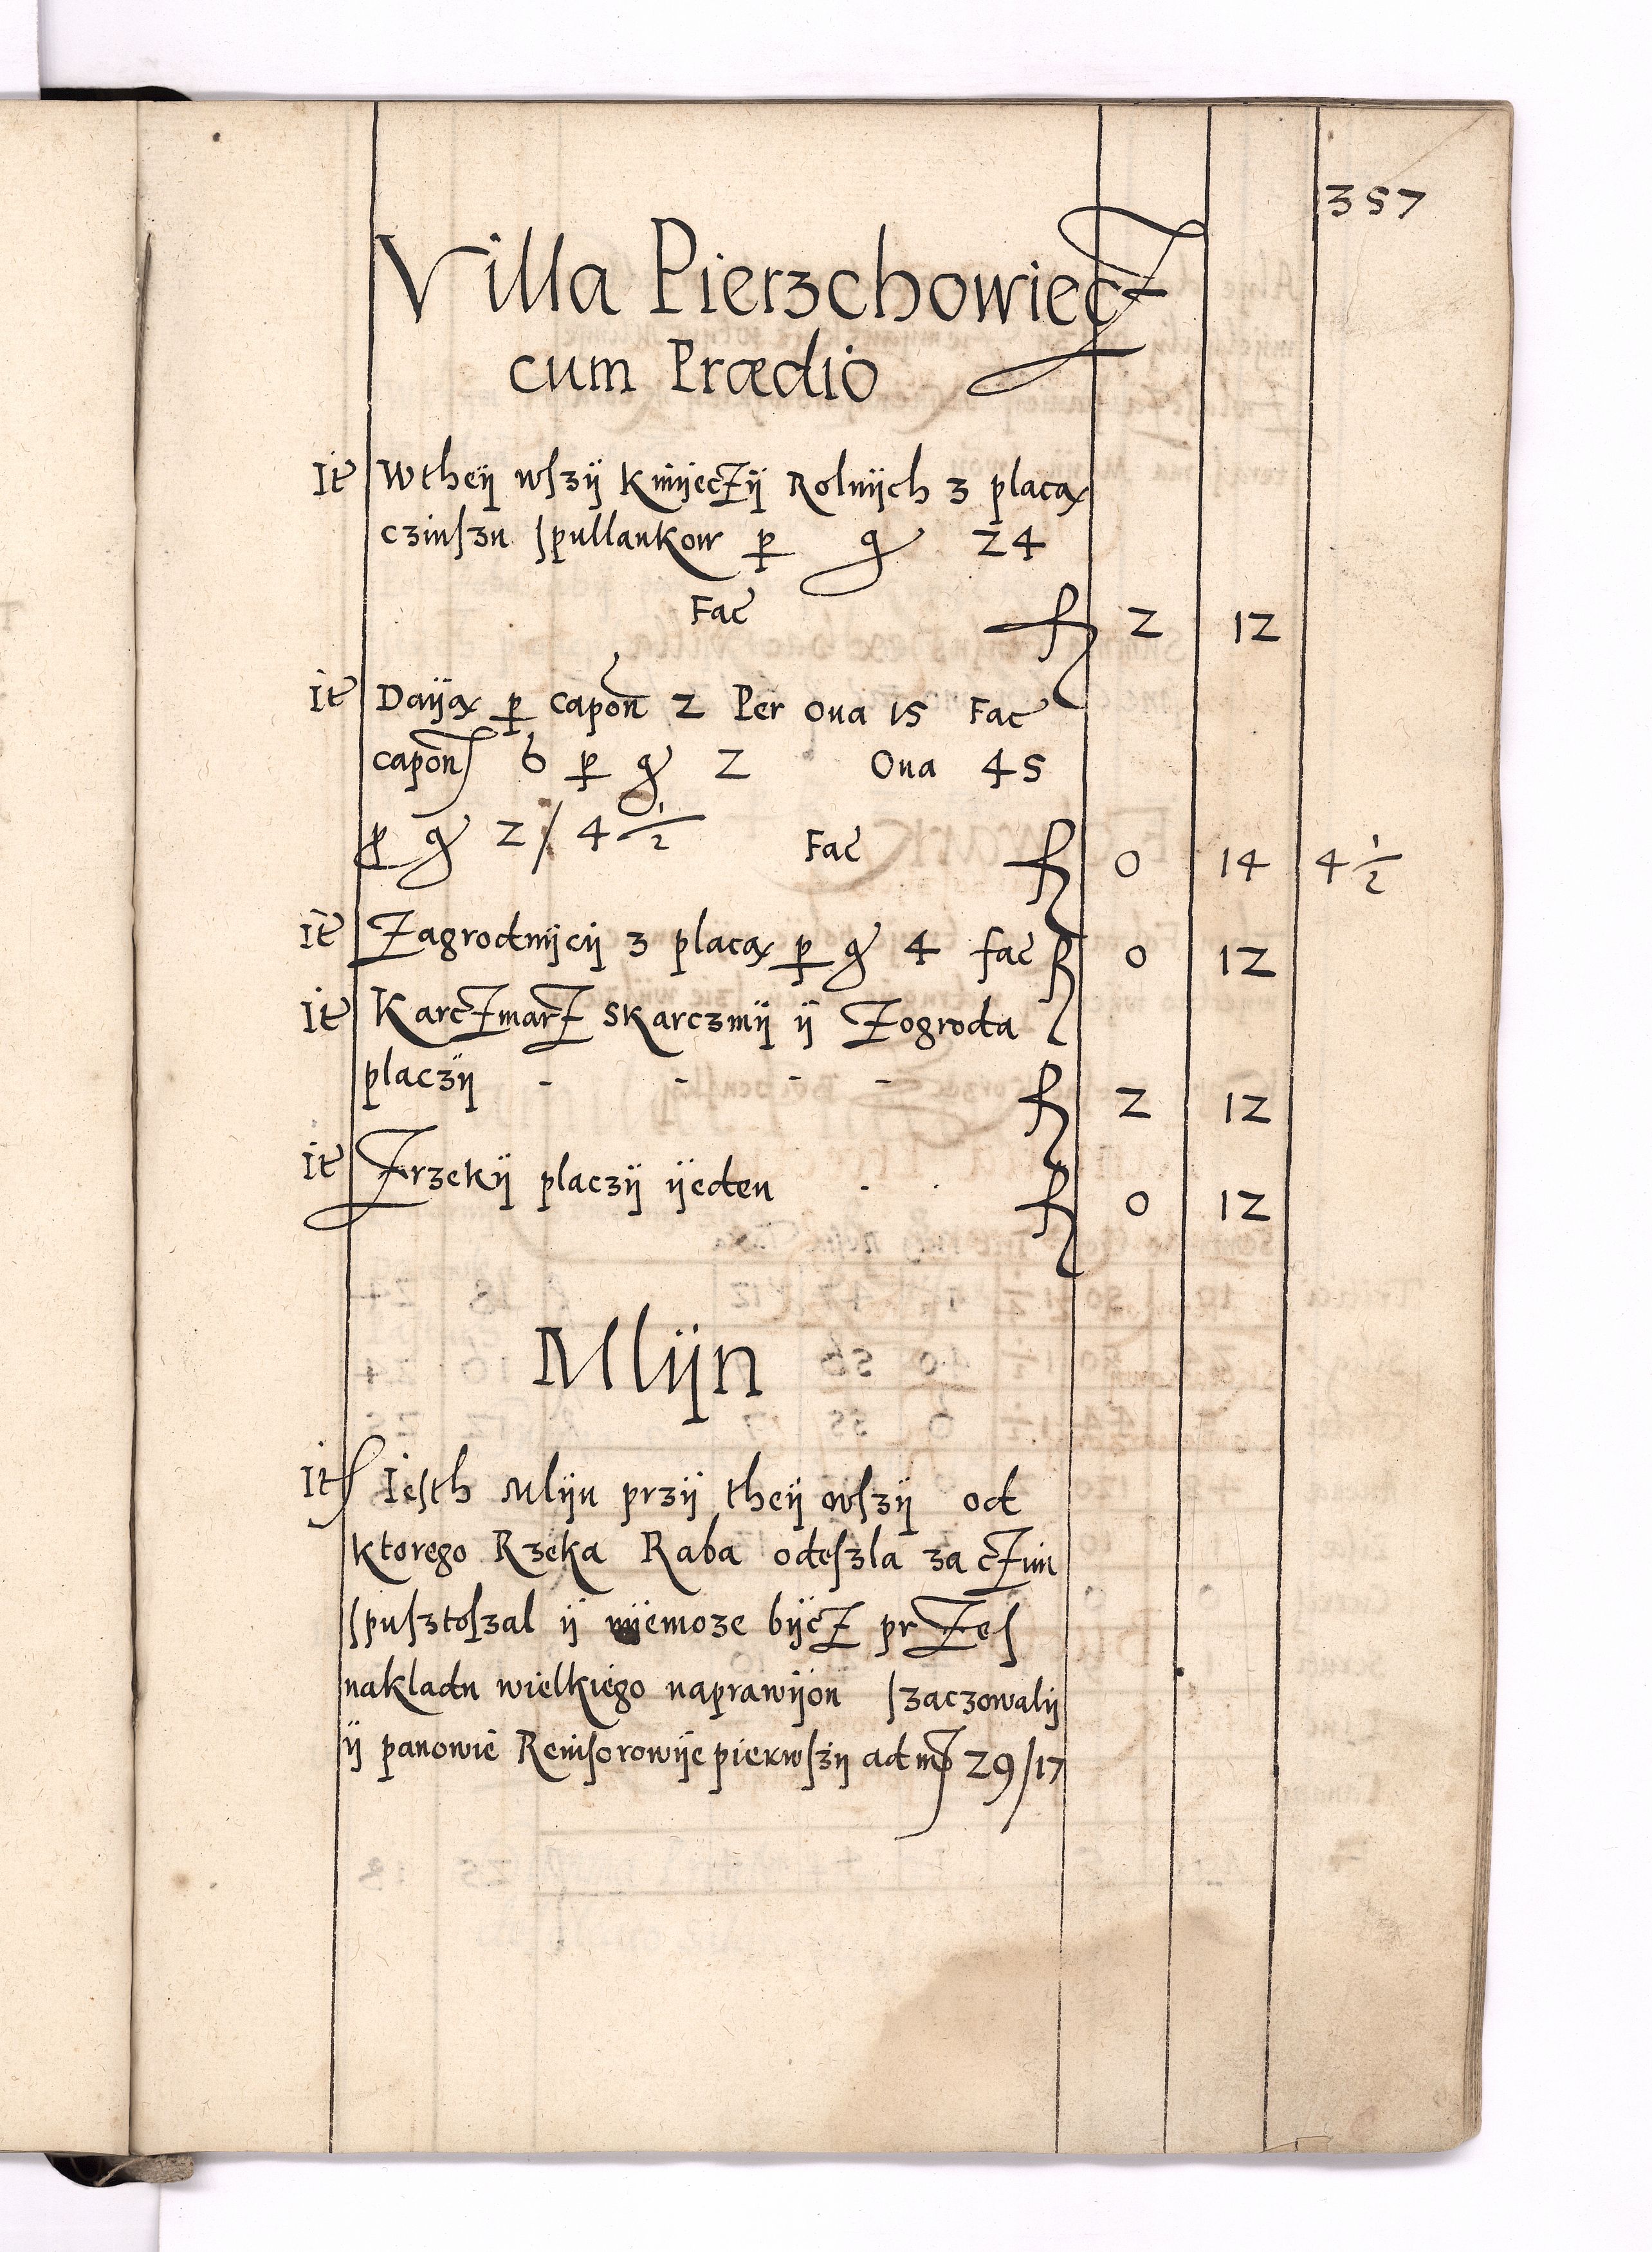 357
Villa Pierzchowiecz
cum Prædio
It Wtheÿ wſzÿ kmÿeczÿ Rolnÿch 3 placą
czinſzu ſpullankow p gͬ 24
Fac fl 2 12
It Daÿą p capon 2 Per oua 15 Fac
capon 6 p gͬ 2 Oua 45
p gͬ 2/4 1/2 Fac fl 0 14 4 1/2
It Zagrodnÿcÿ 3 placą p gͬ 4 fac fl 0 12
It Karczmarz skarczmÿ ÿ Zogroda
placzÿ - - - - fl 2 12
It Zrzekÿ placzÿ ÿeden . . fl 0 12
Mlÿn
It Ieſth Mlÿn przÿ theÿ wſzÿ od
ktorego Rzeka Raba odeſzla za czim
ſpuſztoſzal ÿ nÿemoze bÿcz przeſ
nakladu wielkiego naprawÿon ſzaczowalÿ
ÿ panowie Reuiſorowÿe pierwſzÿ ad mͬ 29/17